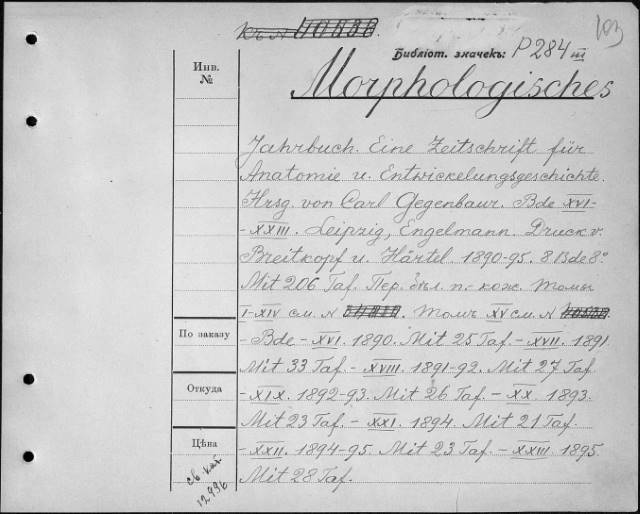 Къ №
103
Библіот. значекъ: P 284 III
Инв. №
Morphologisches
Jahrbuch. Eine Zeitschrift für
Anatomie u. Entwickelungsgeschichte.
Hrsg. von Carl Gegenbaur. Bde XVI-
-XXIII. Leipzig, Engelmann. Druck v.
Breitkopf u. Härtel. 1890-95. 8 Bde 8°.
Mit 206 Taf. Пер. бѣл. п.- кож. Томы
I-XIV см. №. Томъ XV см. №.
По заказу
- Bde - XVI. 1890. Mit 25 Taf. - XVII. 1891
Mit 33 Taf. - XVIII. 1891-92. Mit 27 Taf.
Откуда
- XIX. 1892-93. Mit 26 Taf. - XX. 1893.
Mit 23 Taf. - XXI. 1894. Mit 21 Taf.
Цѣна
- XXII. 1894-95. Mit 23 Taf. - XXIII. 1895.
Mit 28 Taf.
св. кат
12996